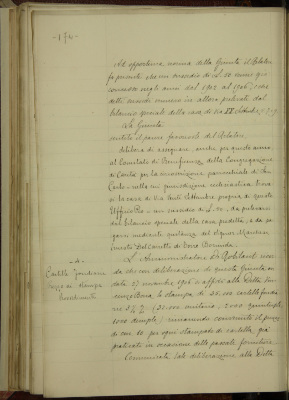 -174-
Ad opportuna norma della Giunta il Relatore
fa presente che un sussidio di L. 50 annue fu
concesso negli anni dal 1902 al 1906 e che
detti sussidi vennero in allora prelevati dal
bilancio speciale della casa di Via XX Settembre
La Giunta
sentito il parere favorevole del Relatore,
delibera di assegnare, anche per questo anno
al Comitato di Beneficenza della Congregazione
di Carità per la circoscrizione parrocchiale di San
Carlo nella cui giurisdizione ecclesiastica trova-
si la casa di Via Venti Settembre propria di questo
Ufficio Pio un sussidio di L. 50, da prelevarsi
dal bilancio speciale della casa predetta, e da pa-
garsi mediante quitanza del Signor
Del Carretto di
-4-
Cartelle fondiarie
Prezzo di stampa
L'Amministratore De Robilant ricor-
da che con deliberazione di questa Giunta in
data 27 marzo 1906 si affidò alla Ditta
la stampa di 35.000 cartelle fondia-
rie 3½% (32.000 unitarie, 2000 quintuple
1000 decuple) rimanendo convenuto il prezzo
di cent. 10 per ogni stampato di cartella, già
praticato in occasione delle passate forniture.
Comunicata tale deliberazione alla Ditta